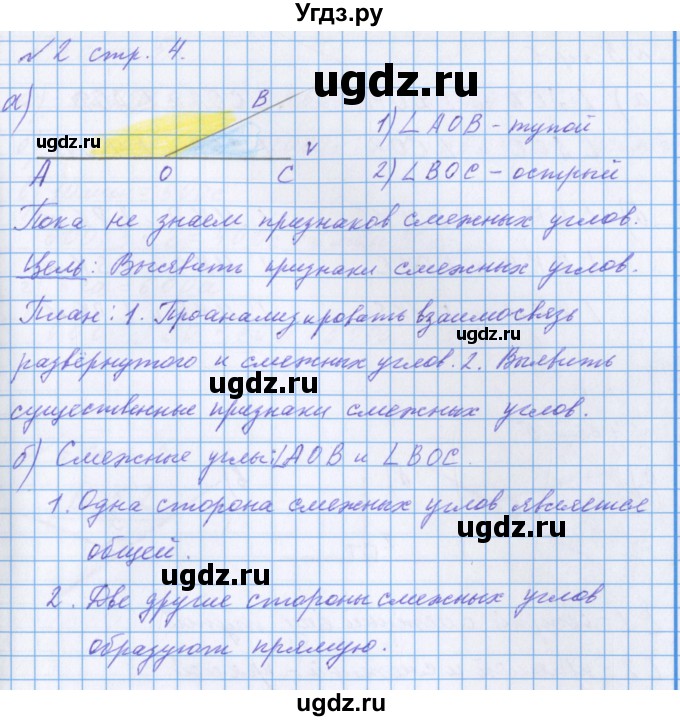 Угдз.ру
№2 стр. 4.
а)
B
ugdz.ru
ugdz.ru
A O C
1) ∠AOB – тупой
2) ∠BOC – острый
Пока не знаем признаков смежных углов.
Цель: Выявить признаки смежных углов.
ugdz.ru
План: 1. Проанализировать взаимосвязь
ugdz.ru
развёрнутого и смежных углов. 2. Выявить
ugdz.ru
существенные признаки смежных углов.
б) Смежные углы: ∠AOB и ∠BOC.
1. Одна сторона смежных углов является
ugdz.ru
общей.
ugdz.ru
2. Две другие стороны смежных углов
образуют прямую.
ugdz.ru
ugdz.ru